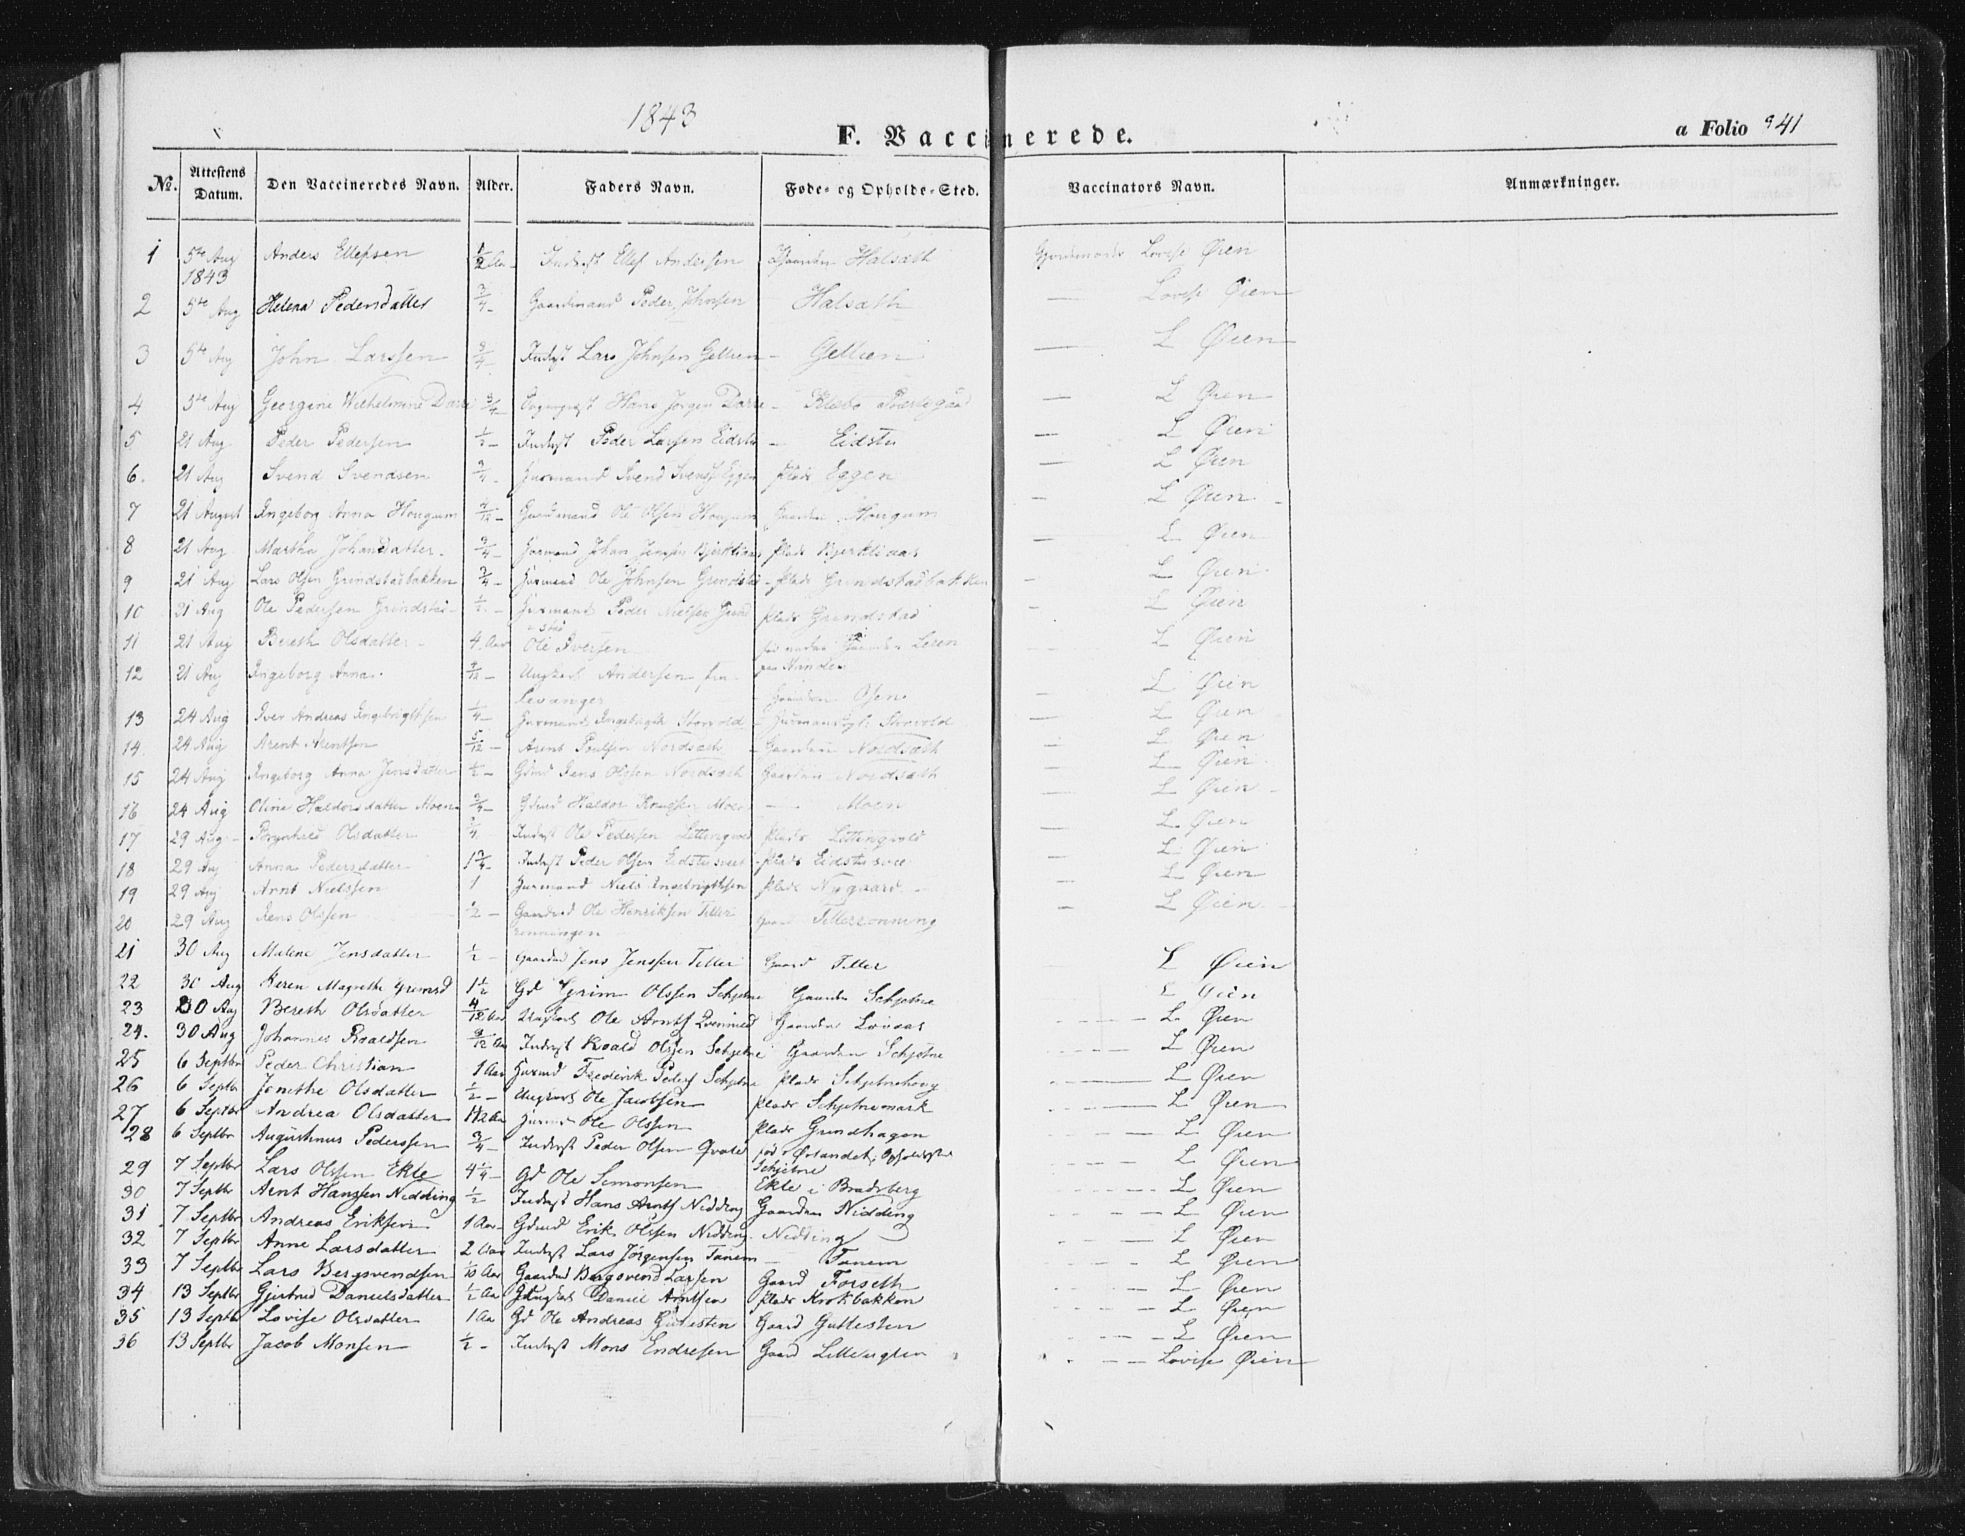 1843
F. Vaccinerede.
a Folio 941
No. Attestens Datum. Den Vaccineredes Navn. Alder. Faders Navn. Føde- og Opholds-Sted. Vaccinators Navn. Anmærkninger.
1 5te Aug 1843 Anders Ellefsen 1/2 Aar Inderst Ellef Andersen Gaarden Halsæth Lovise Øien
2 5te Aug Helena Pedersdatter 3/4 - Gaardmand Peder Johnsen Halsæth — Lovise Øien
3 5te Aug John Larssen 3/4 Inderst Lars Johnsen Gellien - Gellien — L Øien
4 5te Aug Georgine Wilhelmine Darre 3/4 Sogneprest Hans Jørgen Darre - Klæbo Præstegaard — L Øien
5 21 Aug Peder Pedersen 1/2 - Inderst Peder Larsen Eidstu - Eidstu — L Øien
6. 21 Aug Svend Svendsen 3/4 - Huusmand Svend Svends Eggen Plads Eggen — L Øien
7 21 August Ingeborg Anna Hougum Gaardmand Ole Olsen Hougum Gaarden Hougum — L Øien
8 21 Aug Martha Johansdatter 3/4 - Huusmand Johan Jensen Bjerkliaas Plads Bjerkliaas — L Øien
9 21 Aug Lars Olsen Grindstadbakken 3/4 - Huusmand Ole Johnsen Grindstad - Plads Grindstadbakken — L Øien
10 21 Aug Ole Pedersen Grindstad 1/2 - Huusmand Peder Nielsen Grindstad Plads Grindstad — L Øien
11 21 Aug Bereth Olsdatter 4 Aar Ole Iversen Gaarden Leren paa Strinden — L Øien
12 21 Aug Ingeborg Anna Ungkarl Andersen fra Levanger Gaarden Osen — L Øien
13 24 Aug Iver Andreas Ingebrigtsen 1/4 - Huusmand Ingebrigt Storvold - Storvold — L Øien
14. 24 Aug Arent Arentsen 5/12 - Arent Poulsen Nordsæth - Gaarden Nordsæth — L Øien
15 24 Aug Ingeborg Anna Jensdatter 1/2 - Gdmd Jens Olsen Nordsæth Gaarden Nordsæth — L Øien
16 24 Aug Oline Haldorsdatter Moen 3/4 - Gdmd Haldor Knugsen Moen — Moen — L Øien
17 29 Aug Bryntred Olsdatter Inderst Ole Pedersen Lettingvold Plads Lettingvold — L Øien
18 29 Aug Anna Pedersdatter 1 3/4 - Inderst Peder Olsen Eidstusvee - Plads Eidstusvee — L Øien
19 29 Aug Arnt Nielssen 1 Huusmand Niels Ingebrigtsen Plads Nygaard — L Øien
20 29 Aug Jens Olssen 1/2 - Gaardmd Ole Henriksen Tiller rønningen Gaard Tillerrønning — L Øien
21 30 Aug Malene Jensdatter 1/2 - Gaardmd Jens Jenssen Tiller Gaard Tiller L Øien
22 30 Aug Keren Magrethe Grimsd 1 1/2 Gd Grim Olssen Schjetne Gaarden Schjetne L Øien
23 30 Aug Bereth Olsdatter 4/12 Aar Ungkarl Ole Arnts Qvenild Gaarden Løvaas L. Øien
24. 30 Aug Johannes Roaldsen 9/12 Aar Inderst Roald Olssen Schjetne Gaarden Schjetne L Øien
25 6 Septbr Peder Christian 1 Aar Huusmd Frederik Peders Schjetne Plads Schjetnehoug L Øien
26 6 Septbr Jonethe Olsdatter 1/2 - Ungkarl Ole Jacobsen Plads Schjetnemark L Øien
27 6 Septbr Andrea Olsdatter 1 1/2 Aar Huusmd Ole Olssen Plads Grindhagen L Øien
28 6 Septbr Augustinus Pederssen 3/4 - Inderst Peder Olsen Qvale fød Ørlandet, Opholdsted Schjetne L Øien
29 7 Septbr Lars Olssen Ekle 4 1/4 - Gd Ole Simonsen Ekle i Bradsberg L Øien
30 7 Septbr Arnt Hanssen Nidding 1/2 Inderst Hans Arnts Nidding Gaarden Nidding L Øien
31 7 Septbr Andreas Eriksen 1 Aar Gdmd Erik Olssen Nidding Nidding L Øien
32 7 Septbr Anne Larsdatter 2 Aar Inderst Lars Jørgensen Tanem — Tanem L Øien
33 7 Septbr Lars Bergsvendsen Aar Gaardmd Bergsvend Larsen Gaard Forseth L Øien
34 13 Septbr Gjertrud Danielsdatter 1/2 Aar Daniel Arntsen Plads Krokbakken L Øien
35 13 Septbr Lovise Olsdatter 1 Aar Gd Ole Andreas Guttesten Gaard Guttesten L Øien
36 13 Septbr Jacob Monsen 1/2 - Inderst Mons Endresen Gaard Lilleuglen Lovise Øien